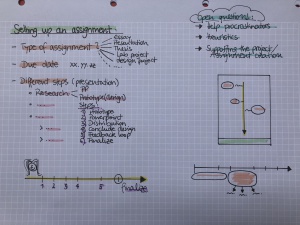 Setting up an assignment
- Type of assignment?
essay
Presentation
Thesis
Lab project
design project
- Due date xx.yy.zz
- Different steps (presentation)
Research:
PP
Prototype(design)
Steps:
1) Prototype
2) Powerpoint
3) Distribution
4) Conclude design
5) Feedback loop
6) Finalize
1 2 3 4 5
Finalize
Open questions:
→ Help procrastinators
→ Heuristics
→ Supporting the project/